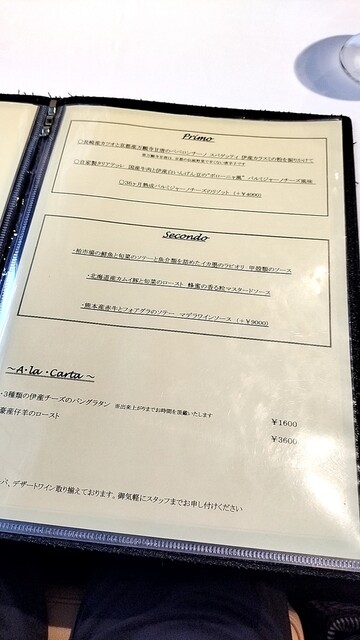 Primo
○長崎産カツオと京都産万願寺甘唐のペペロンチーノ スパゲッティ 伊産カラスミの粉を振りかけて
○自家製タリアテッレ 国産牛肉と伊産白いんげん豆の"ボローニャ風" パルミジャーノチーズ風味
○36ヶ月熟成パルミジャーノチーズのリゾット (+¥4000)
Secondo
・柏市場の鮮魚と旬菜のソテーと魚介類を詰めたイカ墨のラビオリ 甲殻類のソース
・北海道産カムイ豚と旬菜のロースト 蜂蜜の香る粒マスタードソース
・熊本産赤牛とフォアグラのソテー マデラワインソース (+¥9000)
~A・la・Carta~
・3種類の伊産チーズのパングラタン ※出来上がりまでお時間を頂戴いたします ¥1600
豪産仔羊のロースト ¥3600
パ、デザートワイン取り揃えております。御気軽にスタッフまでお申し付けください